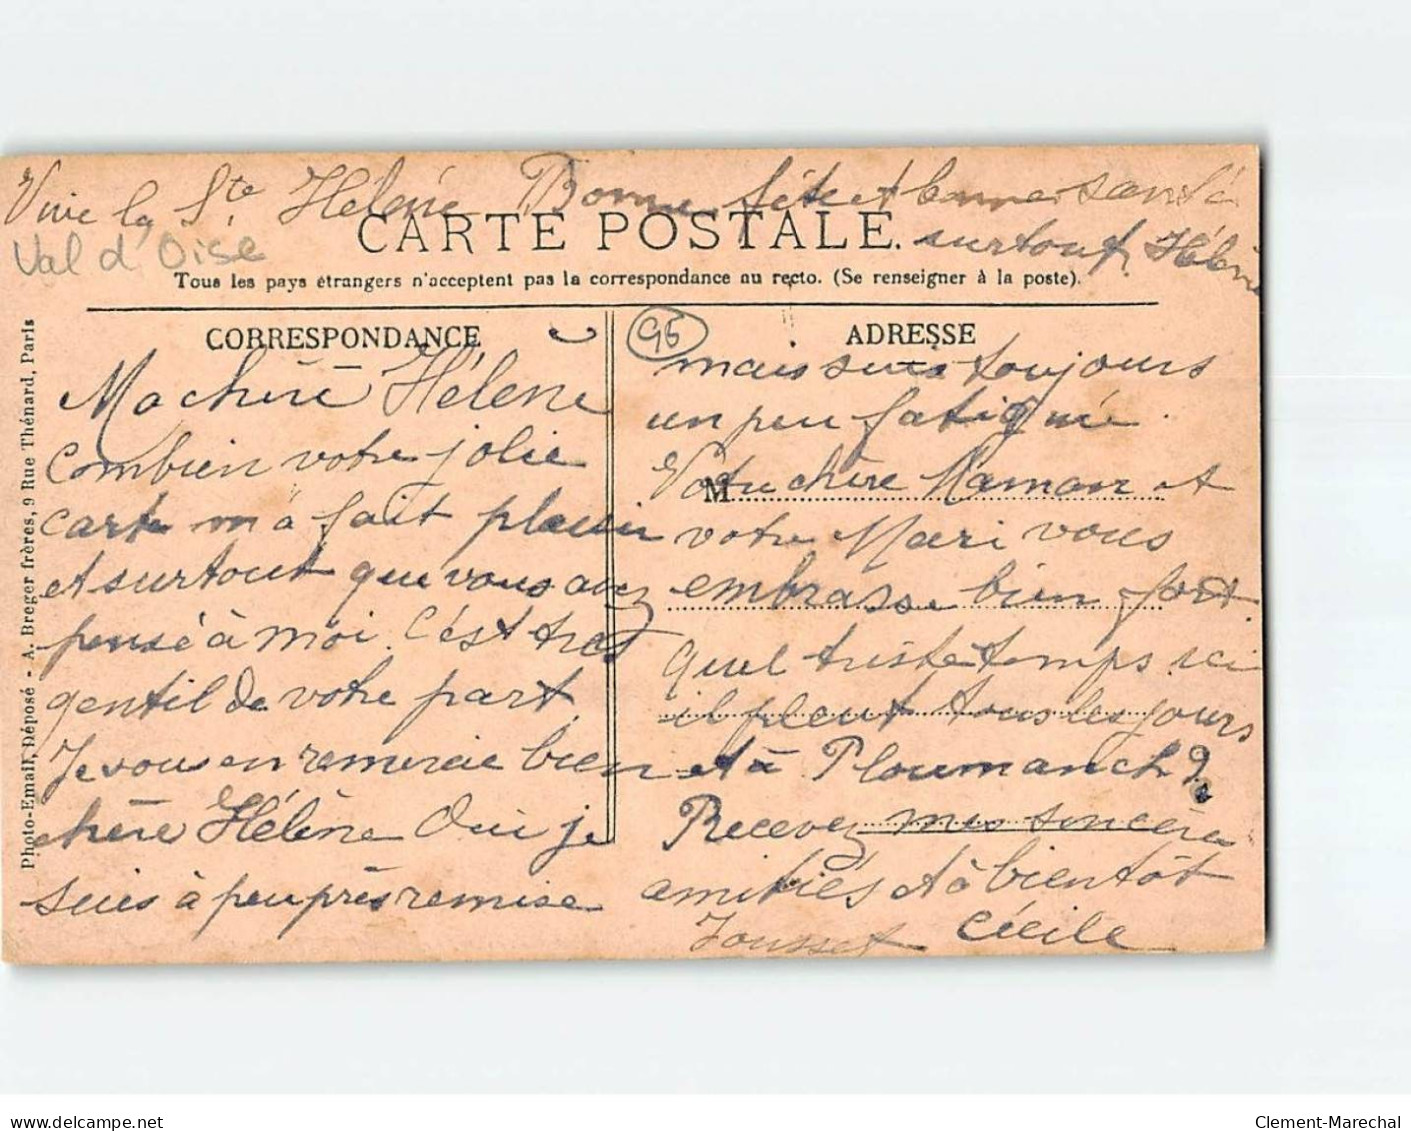 Vive la Ste Hélène Bonne fête et bonne santé
surtout, Hélène
Val d'Oise
CARTE POSTALE.
Tous les pays étrangers n'acceptent pas la correspondance au recto. (Se renseigner à la poste).
Photo-Email, Déposé - A. Breger frères, 9 Rue Thénard, Paris
CORRESPONDANCE
Ma chère Hélène
Combien votre jolie
carte m'a fait plaisir
et surtout que vous avez
pensé à moi. C'est très
gentil de votre part.
Je vous en remercie bien
chère Hélène Oui je
suis à peu près remise
95
ADRESSE
mais suis toujours
un peu fatigué.
M
Votre chère Maman et
votre Mari vous
embrasse bien fort.
Quel triste temps ici
il pleut tous les jours
et à Ploumanch ?
Recevez mes sincères
amitiés et à bientôt
Cécile
Clement-Marechal
www.delcampe.net